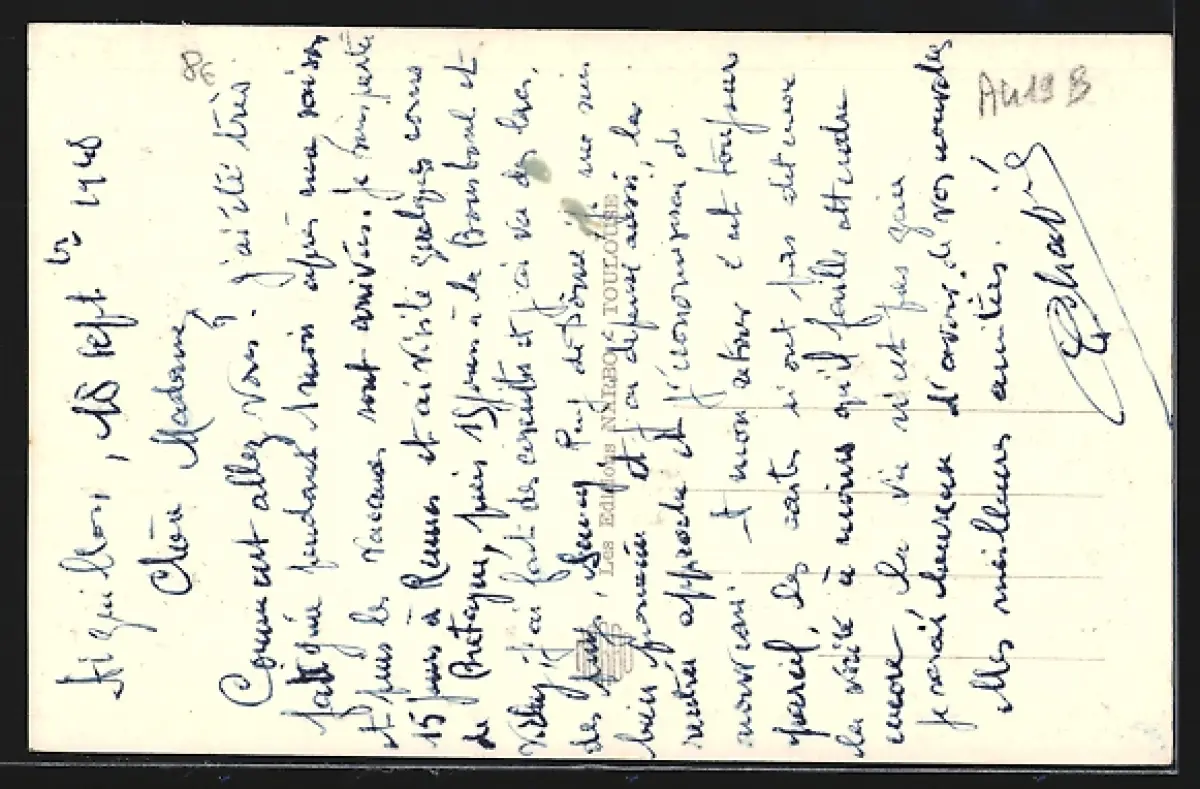 Aiguillon, 18 sept bre 1948
Chère Madame,
Comment allez vous? j'ai été très
fatiguée pendant 1 mois après ma saison
et puis les vacances sont arrivées. Je suis partie
15 jours à Rennes et ai visité quelques coins
de Bretagne, puis 15 jours à la Bourboule et
Vichy, j'ai fait des circuits et j'ai vu des lacs,
des puys, Sancy Puy de Dôme je me suis
bien promenée et j'ai dépensé aussi, la
rentrée approche et j'économiserai de
nouveau! et mon atour c'est toujours
pareil, les cartes n'ont pas
la vérité à moins qu'il faille attendre
encore, la vie n'est pas gaie
je serai heureuse d'avoir de vos nouvelles
Mes meilleures amitiés.
8€
AU19 B
Les Editions NARBO - TOULOUSE